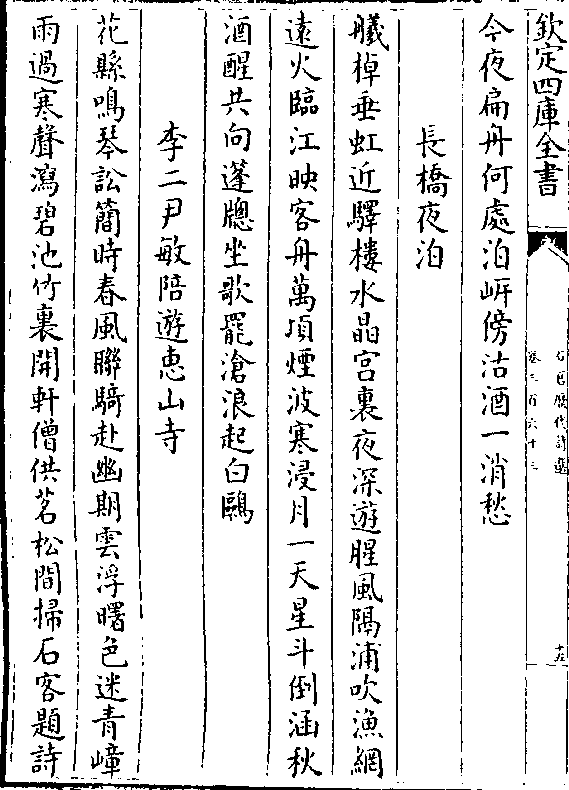 欽定四庫全書
石倉歷代詩選
卷三百六十三
十五
今夜扁舟何處泊㟁傍沽酒一消愁
長橋夜泊
艤棹垂虹近驛樓水晶宮裏夜深遊腥風隔浦吹漁網
遠火臨江映客舟萬頃煙波寒浸月一天星斗倒涵秋
酒醒共向蓬牕坐歌罷滄浪起白鷗
李二尹敏陪遊惠山寺
花縣鳴琴訟簡時春風聯騎赴幽期雲浮曙色迷青嶂
雨過寒聲瀉碧池竹裏開軒僧供茗松間掃石客題詩